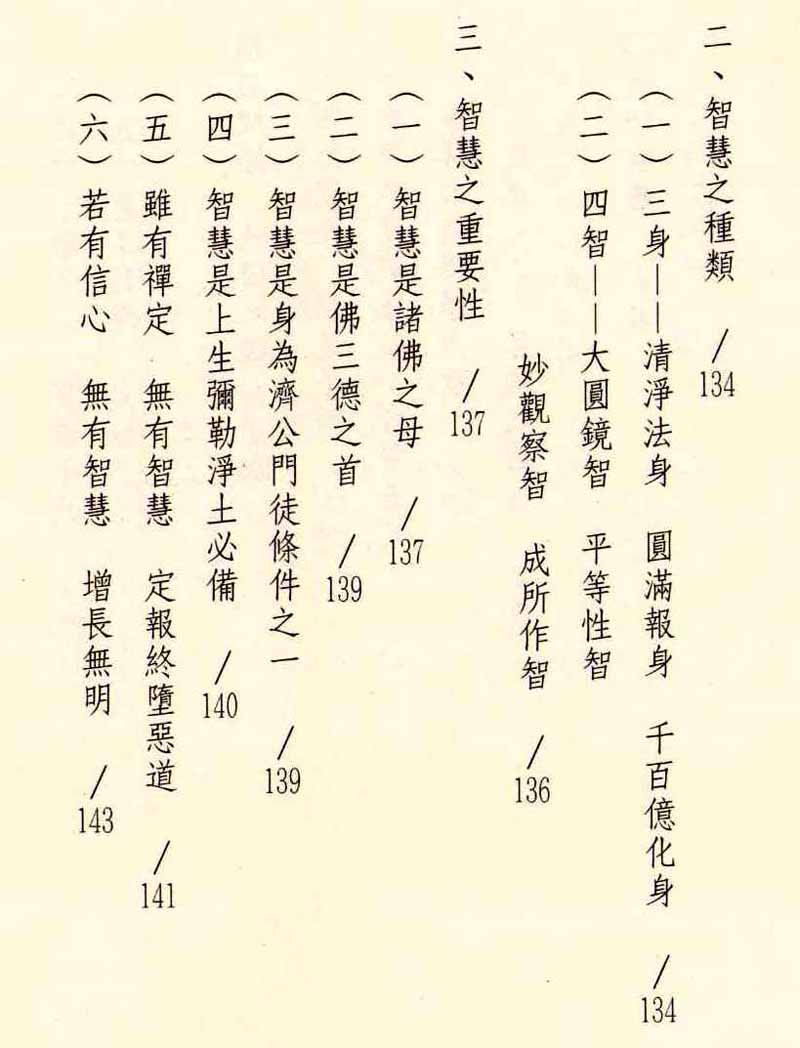 二、智慧之種類 /134
（一）三身——清淨法身 圓滿報身 千百億化身 /134
（二）四智——大圓鏡智 平等性智
妙觀察智 成所作智 /136
三、智慧之重要性 /137
（一）智慧是諸佛之母 /137
（二）智慧是佛三德之首 /139
（三）智慧是身為濟公門徒條件之一 /139
（四）智慧是上生彌勒淨土必備 /140
（五）雖有禪定 無有智慧 定報終墮惡道 /141
（六）若有信心 無有智慧 增長無明 /143